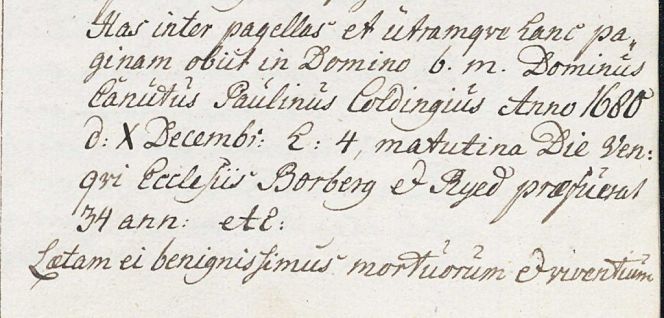 Has inter pagellas et utramqve hanc pa„
ginam obiit in Domino b. m. Dominus
Canutus Paulinus Coldingius Anno 1680
d: X Decembr: h: 4, matutina Die Ven:
qvi Ecclesiis Borberg et Ryed præfuerat
34 ann: etc:
Lætam ei benignissimus mortuorum et viventium